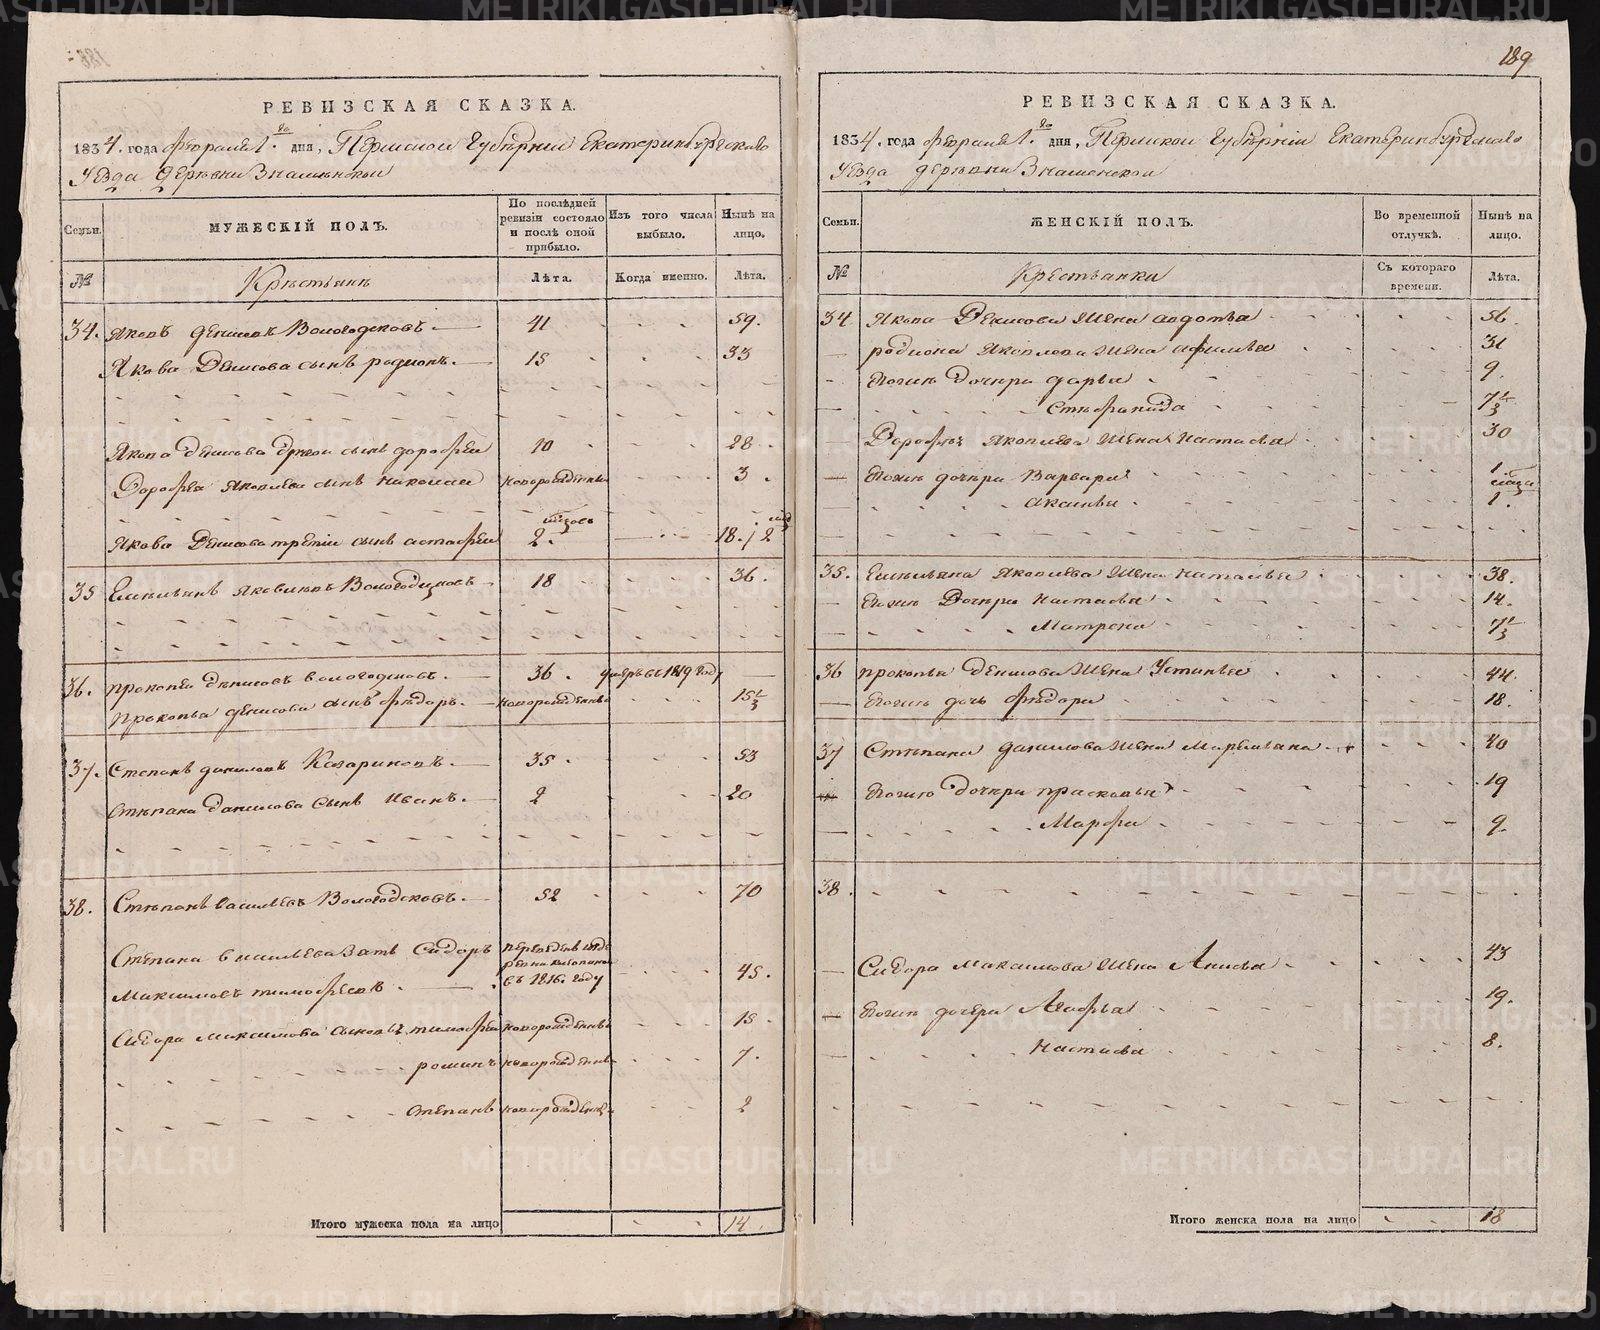 189
РЕВИЗСКАЯ СКАЗКА.
1834. года февраля 1.го дня, Пермской Губѣрнии Екатеринбургскаго
Уезда Дерѣвни Знаменской
Семьи.
МУЖЕСКІЙ ПОЛЪ.
По послѣдней ревизіи состояло и послѣ оной прибыло.
Изъ того числа выбыло.
Нынѣ на лицо.
№
Крѣстьянѣ
Лѣта.
Когда именно.
Лѣта.
34. Яковъ Денисовъ Вологодсковъ. 41 59.
Якова Денисова сынъ радионъ. 15 33
Якова Денисова другои сынъ дорофеи 10 28
Дорофеа Яковлева сынъ николаи новорожденъ 3
Якова Денисова третии сынъ астафеи 2. 18. / 2
35 Емѣльянъ Яковлевъ Вологодсковъ 18 36.
36. прокопеи денисовъ вологодсковъ. 36. умръ въ 1819 году
Прокопьа денисова сынъ фѣдоръ. новорожденъ 15 1/3
37. Степанъ даниловъ Казариновъ. 35. 53
Стѣпана данилова сынъ иванъ. 2 20
38. Стѣпанъ васильевъ Вологодсковъ. 52 70
Стѣпана васильева зять Сидоръ
Максимовъ тимофеевъ. въ 1816. году 45.
Сидора максимова сыновъя тимофеи новорожденъ 15.
романъ новорожденъ 7.
степанъ новорожденъ 2
Итого мужеска пола на лицо 14.
РЕВИЗСКАЯ СКАЗКА.
1834. года февраля 1.го дня, Пермской Губѣрніи Екатеринбургскаго
Уезда дерѣвни Знаменской
Семьи.
ЖЕНСКІЙ ПОЛЪ.
Во временной отлучкѣ.
Нынѣ на лицо.
№
Крестьянки
Съ котораго времени.
Лѣта.
34 Якова Денисова жена авдотьа 56
родиона Яковлева жена афимьа 31
Евоже дочери дарьа 9.
Стѣфанида 7 1/3
Дорофеа Яковлева жена настасьа 30
Евоже дочери Варвара 1
аксиньа 1.
35. Емѣльяна Яковлева жена натальа 38.
Евоже Дочери настасьа 14.
Матрена 7 1/3
36 прокопьа денисова жена Устиньа 44.
Евоже дочь фѣдора 18.
37 Стѣпана данилова жена Маремьана 40
Евоже дочери прасковьа 19
Марфа 9.
38.
Сидора максимова жена Анисьа 43
Евоже дочери Агафьа 19.
Настасьа 8.
Итого женска пола на лицо 18
METRIKI.GASO-URAL.RU